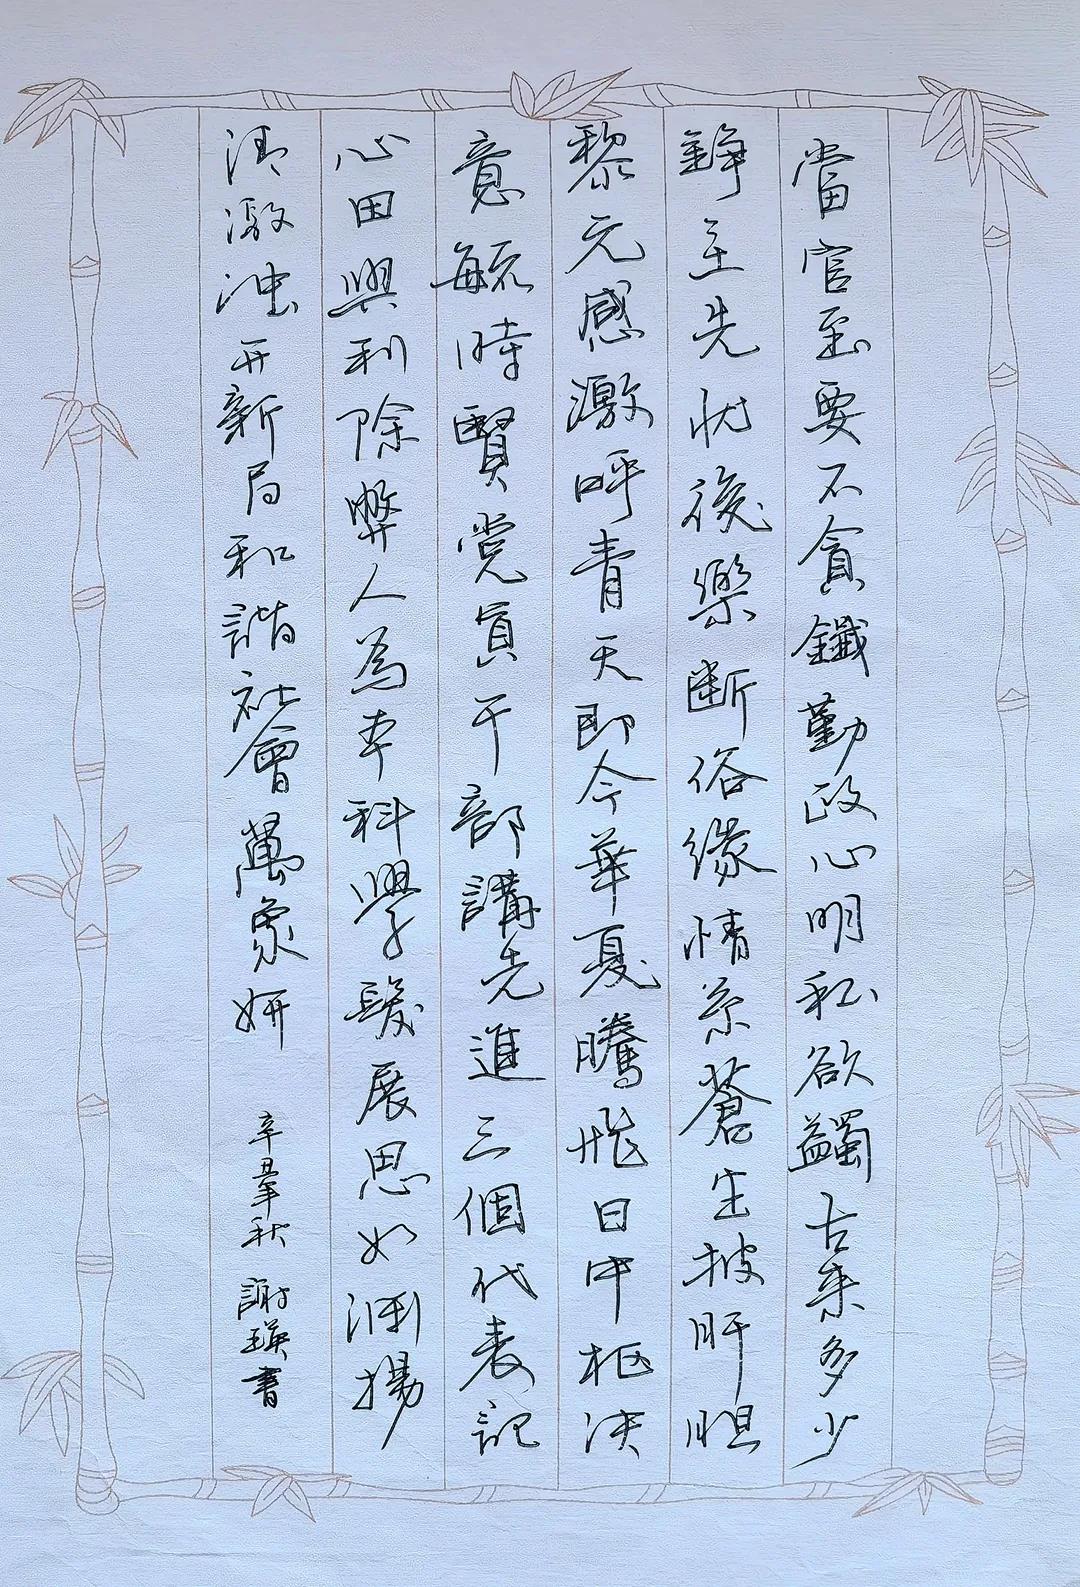 當官至要不貪錢勤政心明私欲蠲古來多少
錚主先忧後樂斷俗緣情系蒼生披肝胆
黎元感激呼青天即今華夏騰飛日中枢决
意毓時賢党員干部講先進三個代表記
心田興利除弊人為本科學發展思如渊揚
清激浊开新局和諧社會萬象妍
辛丑肇秋 謝瑛書